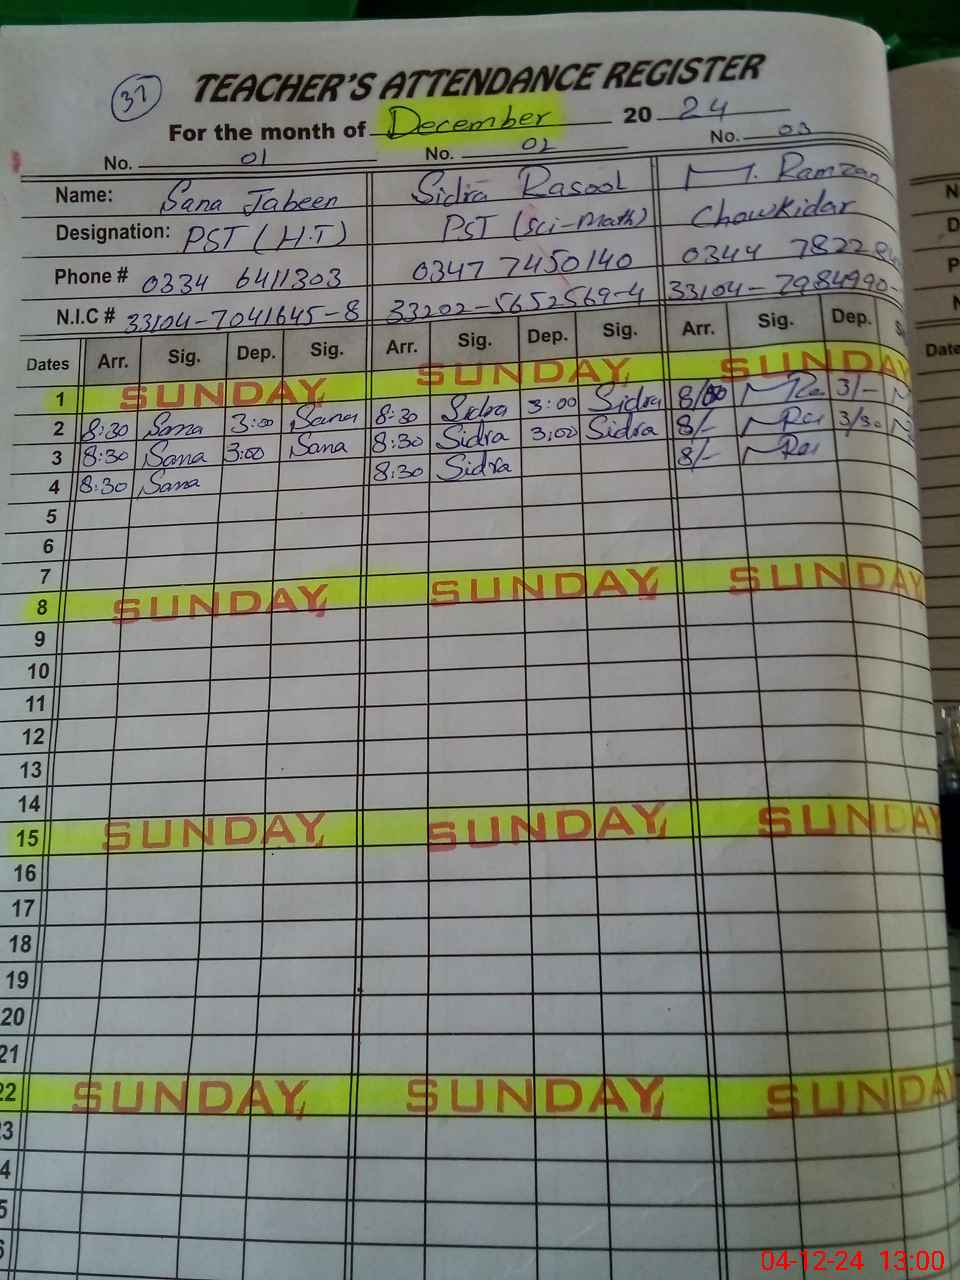 37
TEACHER'S ATTENDANCE REGISTER
For the month of December 20 24
No. 01 No. 02 No. 03
Name: Sana Jabeen Sidra Rasool M. Ramzan
Designation: PST (H.T) PST (Sci-Math) Chowkidar
Phone # 0334 6411303 0347 7450140 0344 7822
N.I.C # 33104-7041645-8 33202-5652569-4 33104-7984990-
Dates Arr. Sig. Dep. Sig. Arr. Sig. Dep. Sig. Arr. Sig. Dep. S
1 SUNDAY SUNDAY SUNDAY
2 8:30 Sana 3:00 Sana 8:30 Sidra 3:00 Sidra 8/00 3/-
3 8:30 Sana 3:00 Sana 8:30 Sidra 3:00 Sidra 8/- 3/30
4 8:30 Sana 8:30 Sidra 8/-
5
6
7
8 SUNDAY SUNDAY SUNDAY
9
10
11
12
13
14
15 SUNDAY SUNDAY SUNDAY
16
17
18
19
20
21
22 SUNDAY SUNDAY SUNDA
23
4
5
6
N
D
P
N
Date
04-12-24 13:00